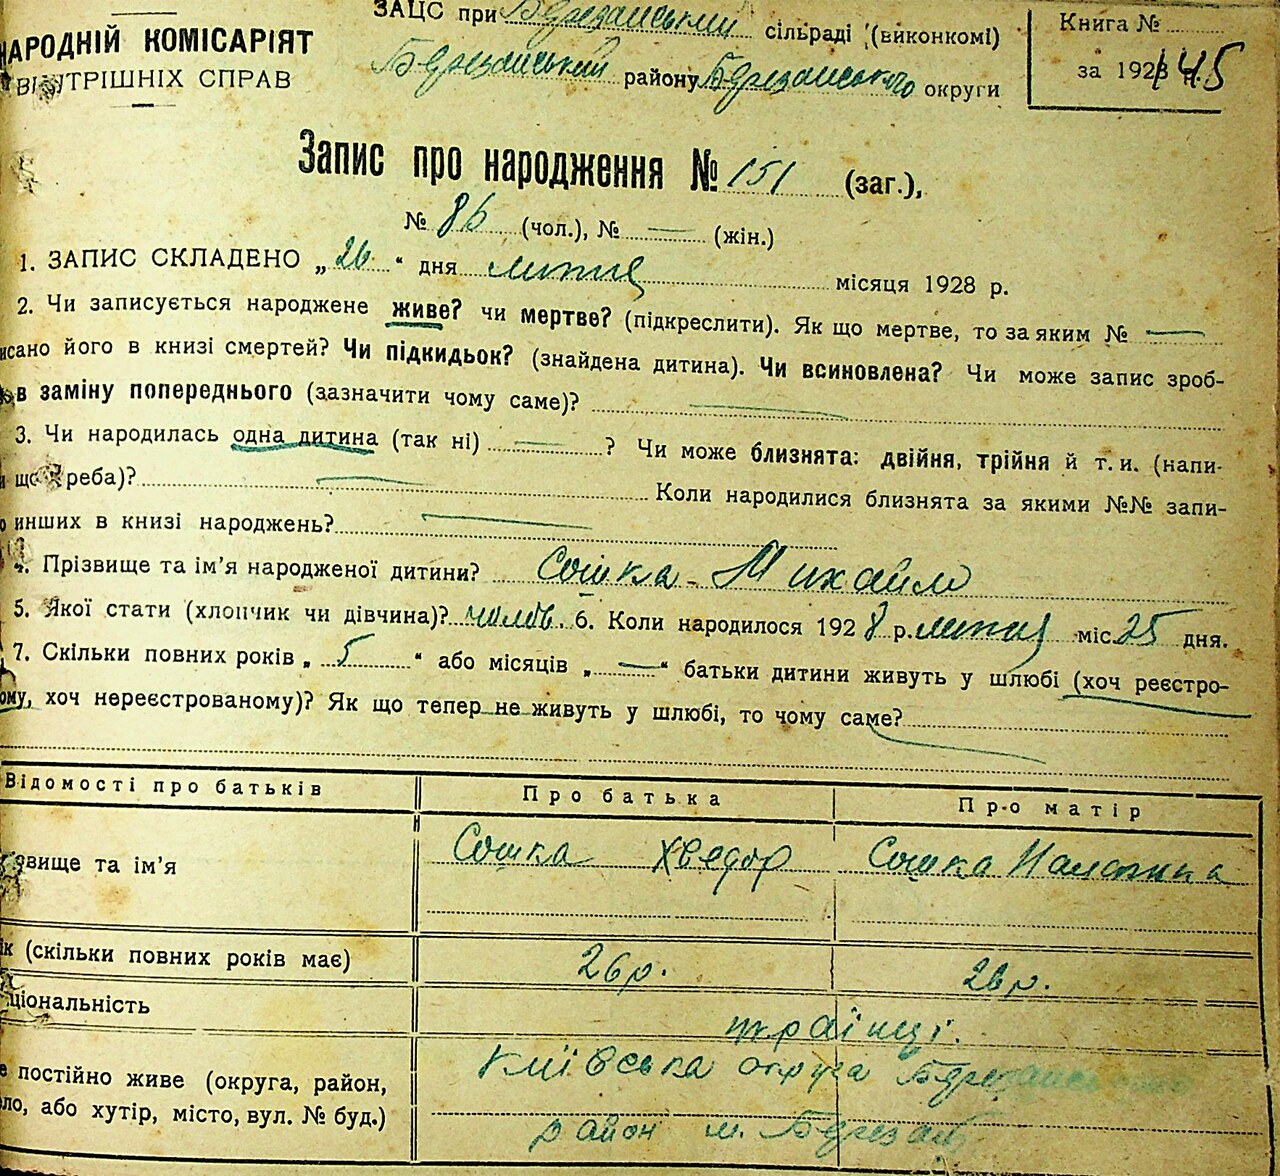 ЗАЦС при Березанський сільраді (виконкомі)
НАРОДНІЙ КОМІСАРІЯТ
ВНУТРІШНІХ СПРАВ
Березанський району Березанського округи
Книга №
за 1928 р.
145
Запис про народження № 151 (заг.),
№ 86 (чол.), № — (жін.)
1. ЗАПИС СКЛАДЕНО „26“ дня липня місяця 1928 р.
2. Чи записується народжене живе? чи мертве? (підкреслити). Як що мертве, то за яким № —
исано його в книзі смертей? Чи підкидьок? (знайдена дитина). Чи всиновлена? Чи може запис зроб-
в заміну попереднього (зазначити чому саме)? —
3. Чи народилась одна дитина (так ні) — ? Чи може близнята: двійня, трійня й т. и. (напи-
що треба)? — Коли народилися близнята за якими №№ запи-
о инших в книзі народжень? —
4. Прізвище та ім'я народженої дитини? Сошка - Михайло
5. Якої стати (хлопчик чи дівчина)? чолов. 6. Коли народилося 1928 р. липня міс. 25 дня.
7. Скільки повних років „5“ або місяців „—“ батьки дитини живуть у шлюбі (хоч реєстро-
ому, хоч нереєстрованому)? Як що тепер не живуть у шлюбі, то чому саме?
Відомості про батьків Про батька Про матір
звище та ім'я Сошка Хведор Сошка
ік (скільки повних років має) 26р. 26р.
ціональність українці.
е постійно живе (округа, район, Київська округа Березанський
ло, або хутір, місто, вул. № буд.) район м. Березань